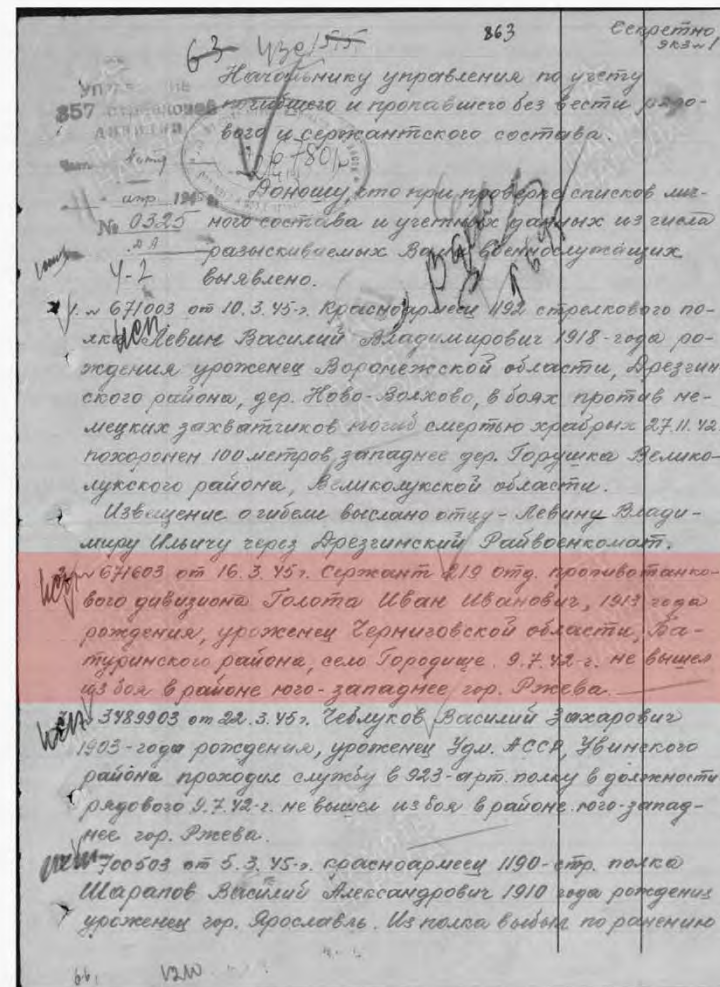 63 436/55
863
Секретно
экз № 1
Начальнику управления по учету
357
погибшего и пропавшего без вести рядо-
вого и сержантского состава.
апр 194
Доношу, что при проверке списков лич-
№ 0325
ного состава и учетных данных из числа
разыскиваемых Вами военнослужащих
4-2
выявлено.
1. № 671003 от 10.3.45-г. Красноармеец 1192 стрелкового по-
лка Левин Василий Владимирович 1918-года ро-
ждения уроженец Воронежской области, Дрезгин
ского района, дер. Ново-Волхово, в боях против не-
мецких захватчиков погиб смертью храбрых 27.11.42.
похоронен 100 метров западнее дер. Горушка Велико-
лукского района, Великолукской области.
Извещение о гибели выслано отцу - Левину Влади-
миру Ильичу через Дрезгинский Райвоенкомат.
№ 671603 от 16.3.45г. Сержант 219 отд. противотанко-
вого дивизиона Голота Иван Иванович, 1913 года
рождения, уроженец Черниговской области, Ба-
туринского района, село Городище. 9.7.42-г. не вышел
из боя в районе юго-западнее гор. Ржева.
№ 3489903 от 22.3.45г. Чевлуков Василий Захарович
1903-года рождения, уроженец Удм. АССР, Увинского
района проходил службу в 923-арт. полку в должности
рядового 9.7.42-г. не вышел из боя в районе юго-запад-
нее гор. Ржева.
700503 от 5.3.45-г. красноармеец 1190-стр. полка
Шарапов Василий Александрович 1910 года рождения
уроженец гор. Ярославль. Из полка выбыл по ранению
66.